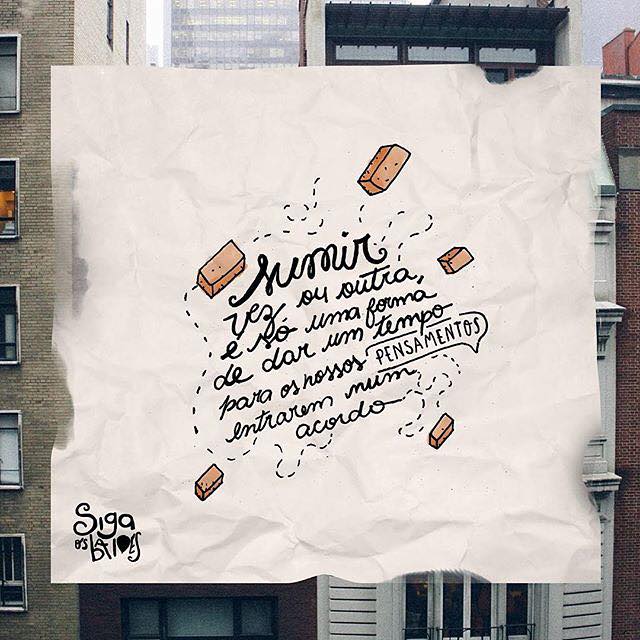 sumir
vez ou outra,
é só uma forma
de dar um tempo
para os nossos PENSAMENTOS
entrarem num
acordo
Siga
os
BALÕES